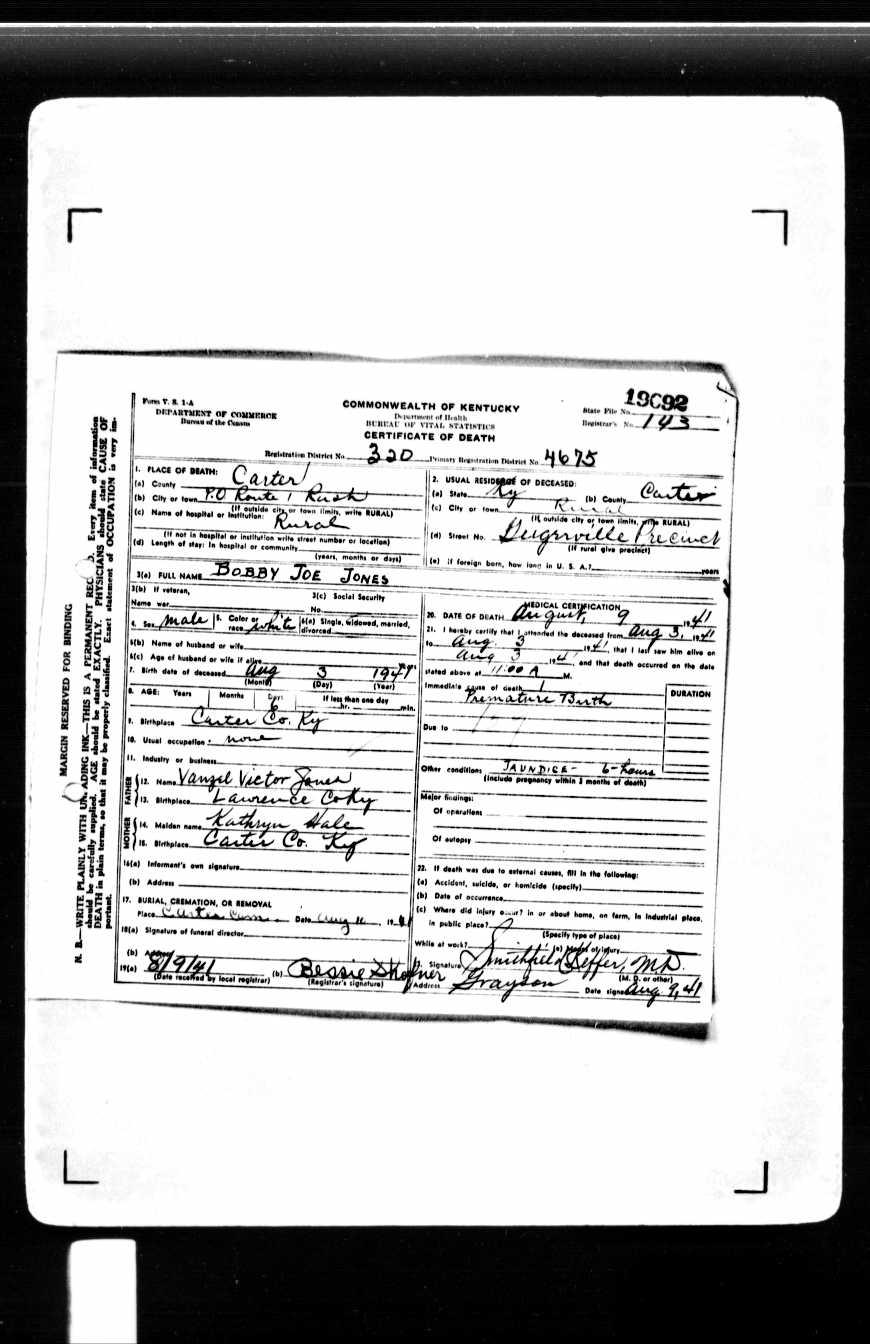 Form V. S. 1-A
DEPARTMENT OF COMMERCE
Bureau of the Census
COMMONWEALTH OF KENTUCKY
Department of Health
BUREAU OF VITAL STATISTICS
CERTIFICATE OF DEATH
State File No. 19092
Registrar's No. 143
Registration District No. 320 Primary Registration District No. 4675
1. PLACE OF DEATH:
(a) County Carter
(b) City or town P.O Route 1 Rush
(If outside city or town limits, write RURAL)
(c) Name of hospital or institution: Rural
(If not in hospital or institution write street number or location)
(d) Length of stay: In hospital or community
(years, months or days)
2. USUAL RESIDENCE OF DECEASED:
(a) State Ky (b) County Carter
(c) City or town Rural
(If outside city or town limits, write RURAL)
(d) Street No. Geigerville Precinct
(If rural give precinct)
(e) If foreign born, how long in U. S. A.? years
3(a) FULL NAME BOBBY JOE JONES
3(b) If veteran,
Name war
3(c) Social Security
No.
4. Sex male 5. Color or race white 6(a) Single, widowed, married, divorced
6(b) Name of husband or wife
6(c) Age of husband or wife if alive
7. Birth date of deceased Aug 3 1941
(Month) (Day) (Year)
8. AGE: Years Months Days If less than one day
6 hr. min.
9. Birthplace Carter Co. Ky
10. Usual occupation none
11. Industry or business
FATHER
12. Name Vanzil Victor Jones
13. Birthplace Lawrence Co Ky
MOTHER
14. Maiden name Kathryn Hale
15. Birthplace Carter Co. Ky
16(a) Informant's own signature
(b) Address
17. BURIAL, CREMATION, OR REMOVAL
Place Carter Date Aug 19 41
18(a) Signature of funeral director
(b) Address
19(a) 8/9/41 (b) Bessie
(Date received by local registrar) (Registrar's signature)
MEDICAL CERTIFICATION
20. DATE OF DEATH August, 9 1941
21. I hereby certify that I attended the deceased from Aug 3, 1941
to Aug. 3 1941, that I last saw him alive on
Aug 3 194 and that death occurred on the date
stated above at 11:00 A M.
Immediate cause of death
Premature Birth
DURATION
Due to
Other conditions JAUNDICE - 6-hours
(Include pregnancy within 3 months of death)
Major findings:
Of operations
Of autopsy
22. If death was due to external causes, fill in the following:
(a) Accident, suicide, or homicide (specify)
(b) Date of occurrence
(c) Where did injury occur? in or about home, on farm, in industrial place,
in public place?
(Specify type of place)
While at work? (e) Means of injury
23. Signature Smithfield Keffer, MD.
(M. D. or other)
Address Grayson Date signed Aug. 9, 41
MARGIN RESERVED FOR BINDING
N. B.—WRITE PLAINLY WITH UNFADING INK—THIS IS A PERMANENT RECORD. Every item of information
should be carefully supplied. AGE should be stated EXACTLY. PHYSICIANS should state CAUSE OF
DEATH in plain terms, so that it may be properly classified. Exact statement of OCCUPATION is very im-
portant.